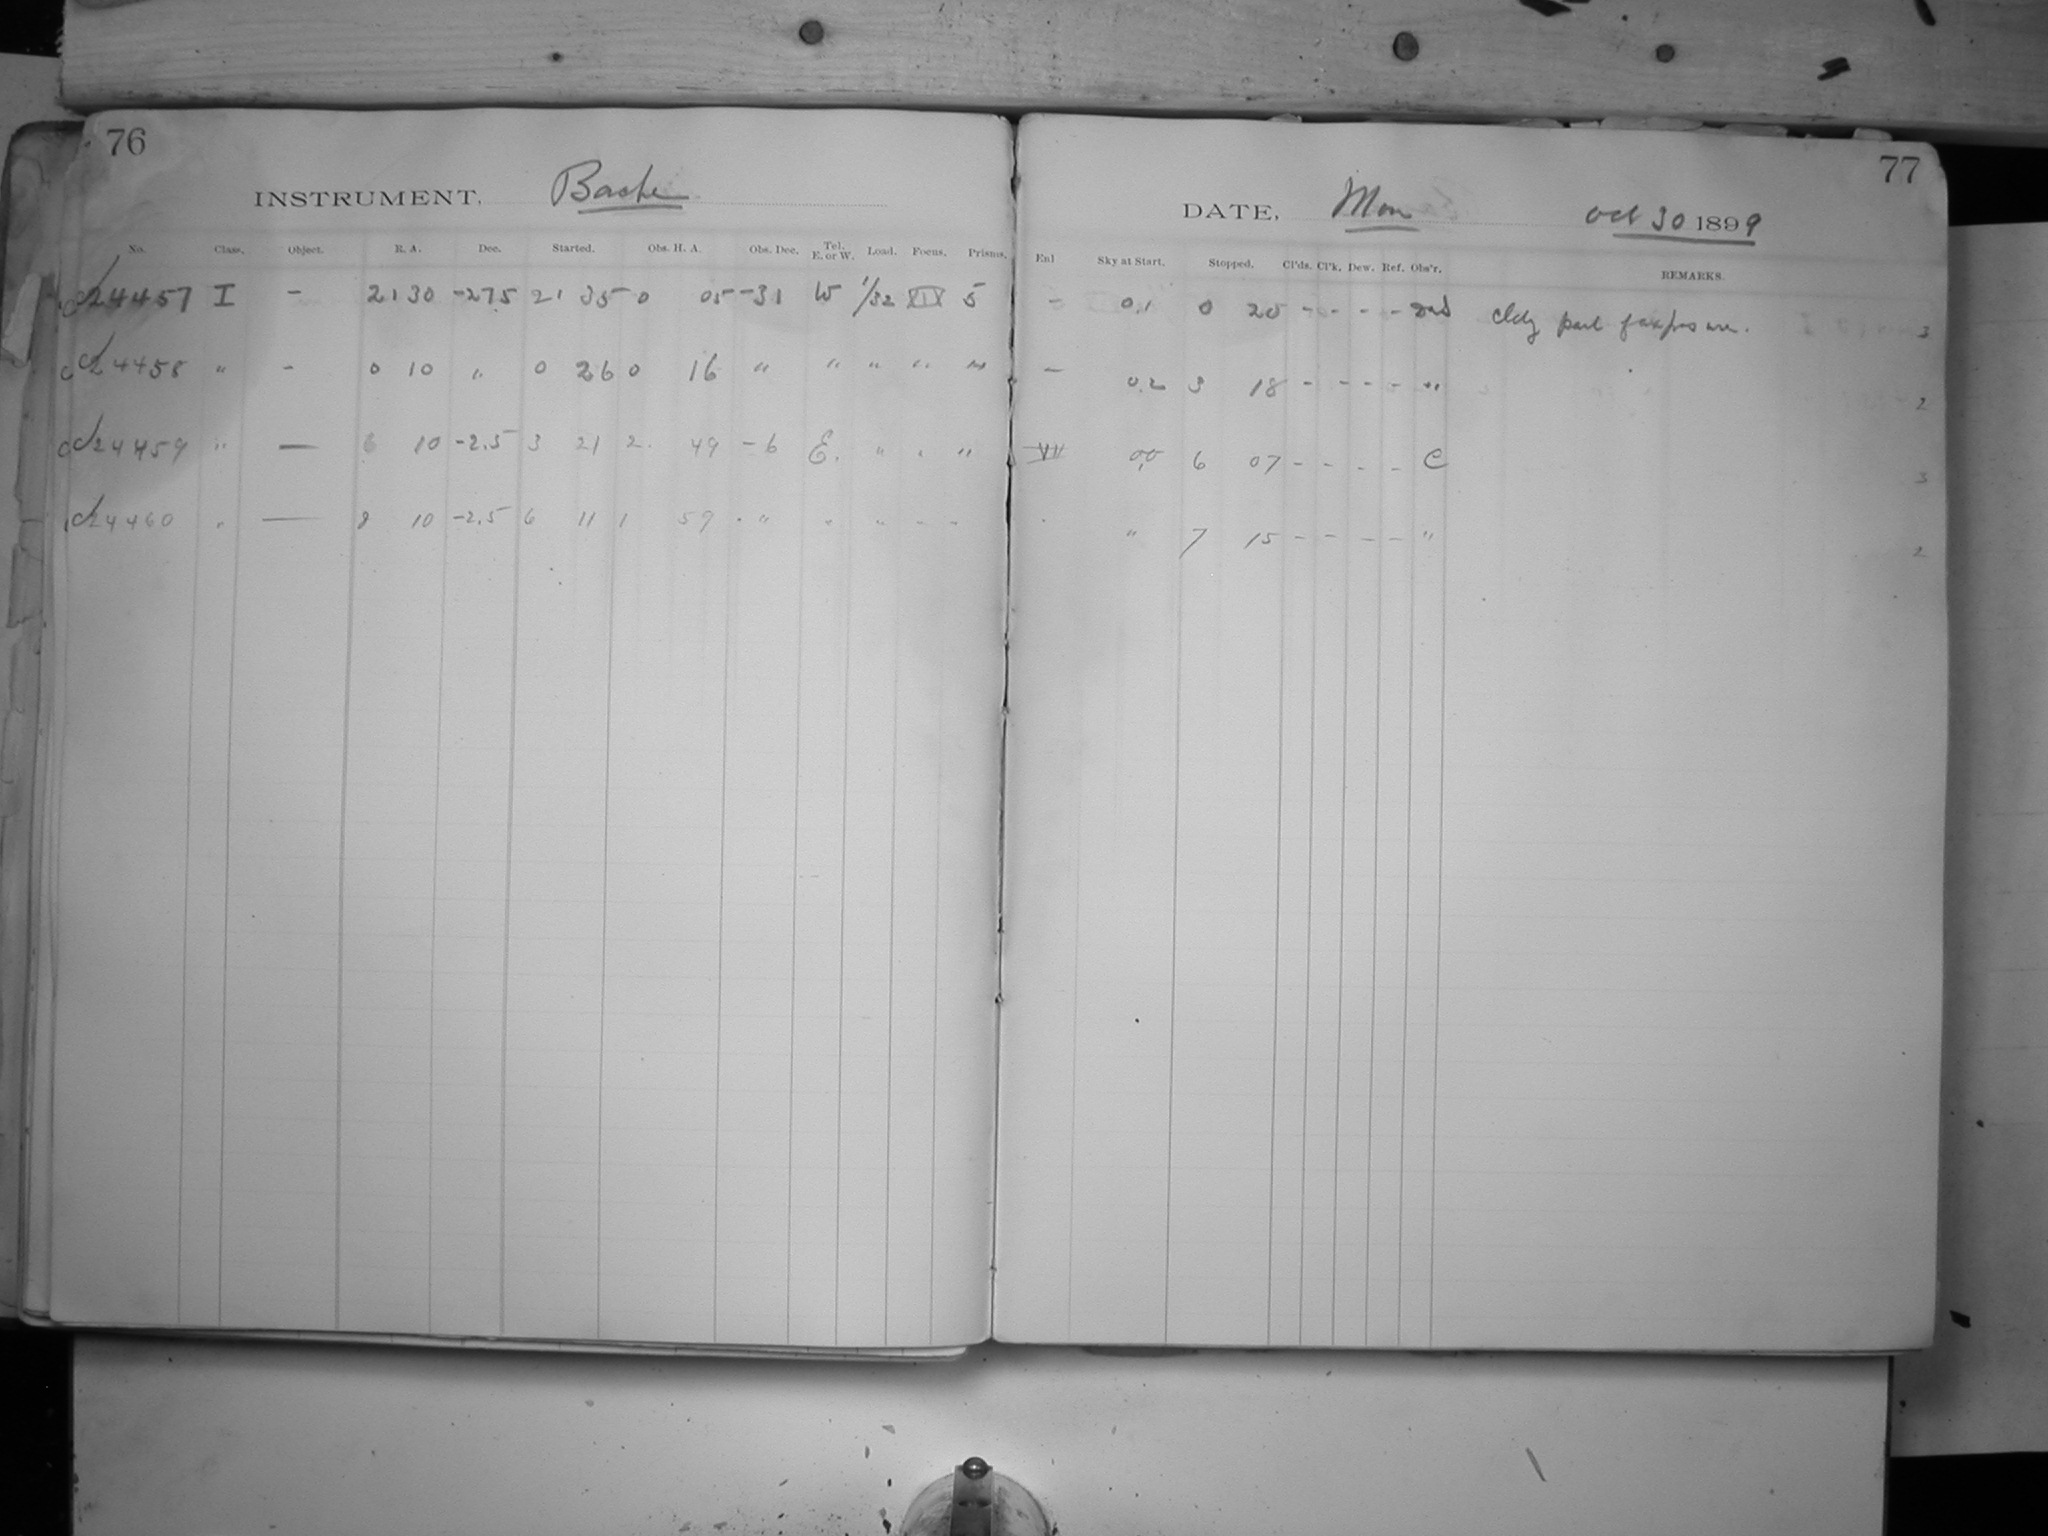 76
INSTRUMENT, Bache
No. Class. Object. R. A. Dec. Started. Obs. H. A. Obs. Dec. Tel. E. or W. Load. Focus. Prisms.
24457 I - 21 30 -27.5 21 35 0 05 -31 W 1/32 XIX 5
24458 " - 0 10 " 0 26 0 16 " " " " "
24459 " — 6 10 -2.5 3 21 2 49 -6 E. " " "
24460 " — 8 10 -2.5 6 11 1 59 " " " - -
77
DATE, Mon Oct 30 1899
Enl Sky at Start. Stopped. Cl'ds. Cl'k. Dew. Ref. Obs'r. REMARKS.
- 0.1 0 20 - - - - cldy part of exposure. 3
- 0.2 3 18 - - - - " 2
VII 0.0 6 07 - - - - C 3
" 7 15 - - - - " 2